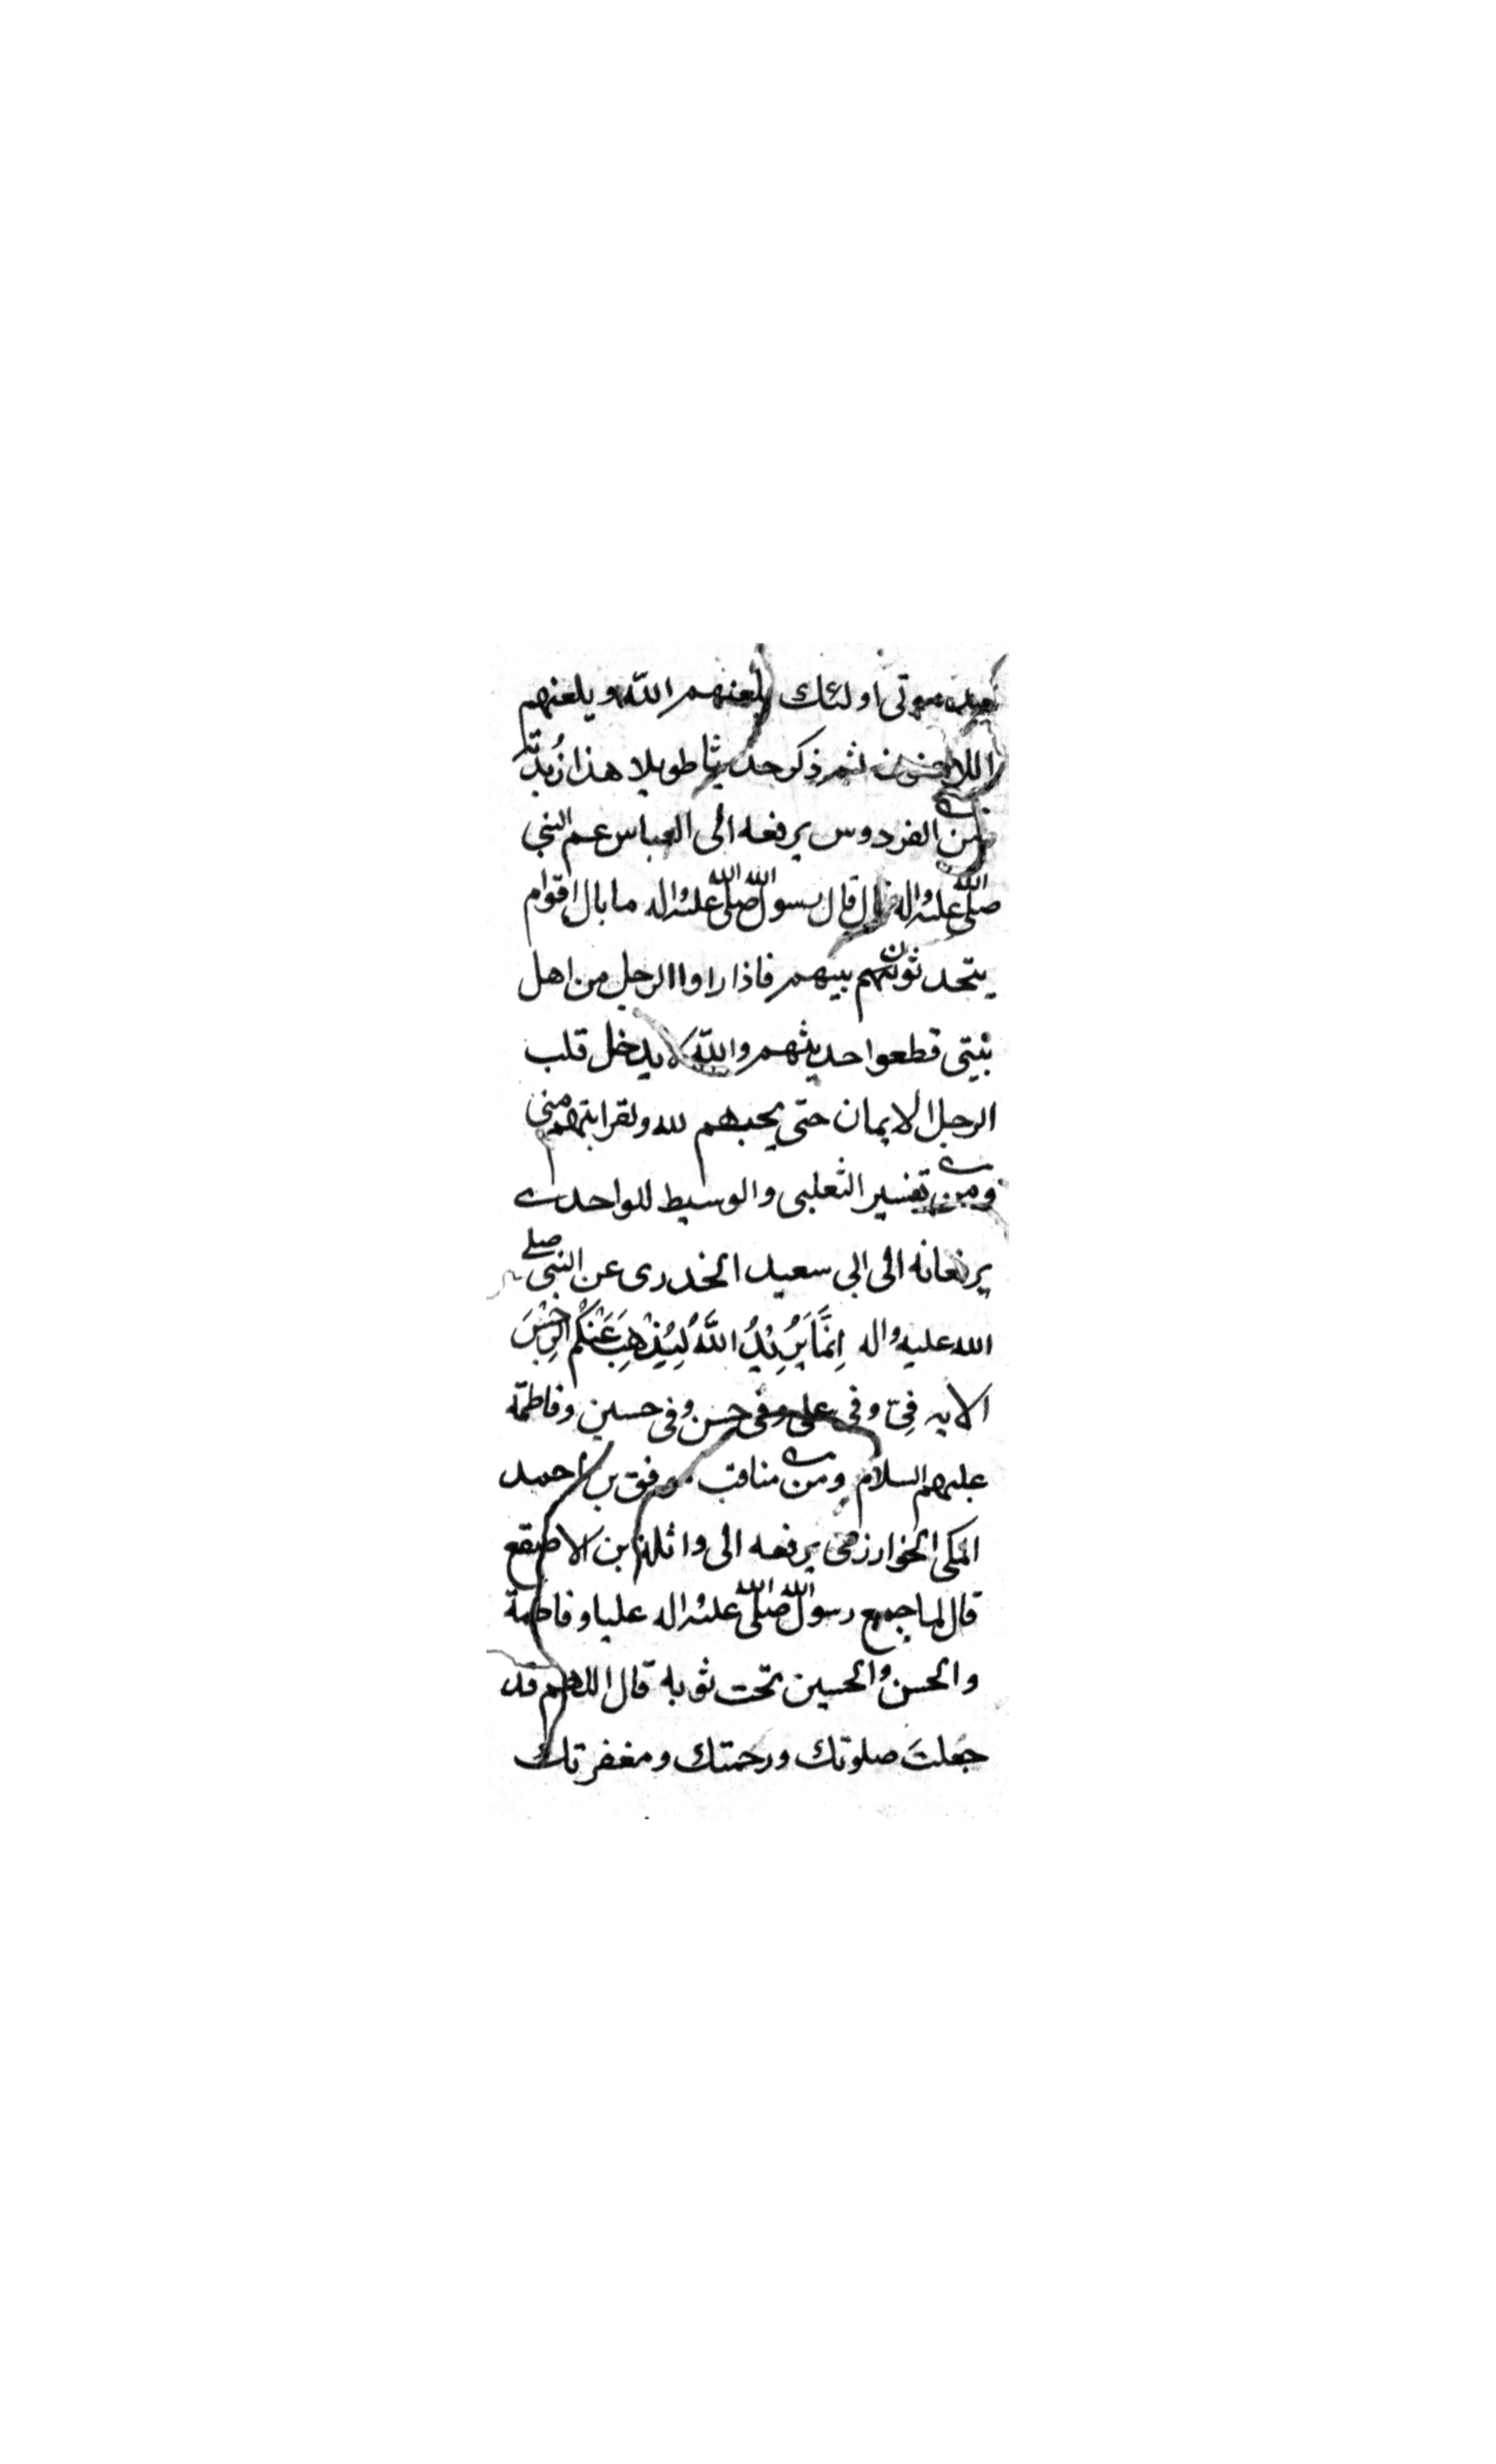 بعد موتى اولئك يلعنهم الله ويلعنهم
اللاعنون ثم ذكر حديثا طويلا هذا زبدته
ومن الفردوس يرفعه الى العباس عم النبي
صلى الله عليه واله قال قال رسول الله صلى الله عليه واله ما بال اقوام
يتحدثون بينهم فاذا راوا الرجل من اهل
بيتى قطعوا حديثهم والله لا يدخل قلب
الرجل الايمان حتى يحبهم لله ولقرابتهم منى
ومن تفسير الثعلبى والوسيط للواحدى
يرفعانه الى ابى سعيد الخدرى عن النبى صلى
الله عليه واله اِنَّمَا يُرِيْدُ اللَّهُ لِيُذْهِبَ عَنْكُمُ الرِّجْسَ
الايه فِىّ وفى على وفى حسن وفى حسين وفاطمة
عليهم السلام ومن مناقب موفق بن احمد
المكى الخوارزمى يرفعه الى واثلة بن الاصقع
قال لما جمع رسول الله صلى الله عليه واله عليا وفاطمة
والحسن والحسين تحت ثوبه قال اللهم قد
جعلتَ صلوتك ورحمتك ومغفرتك